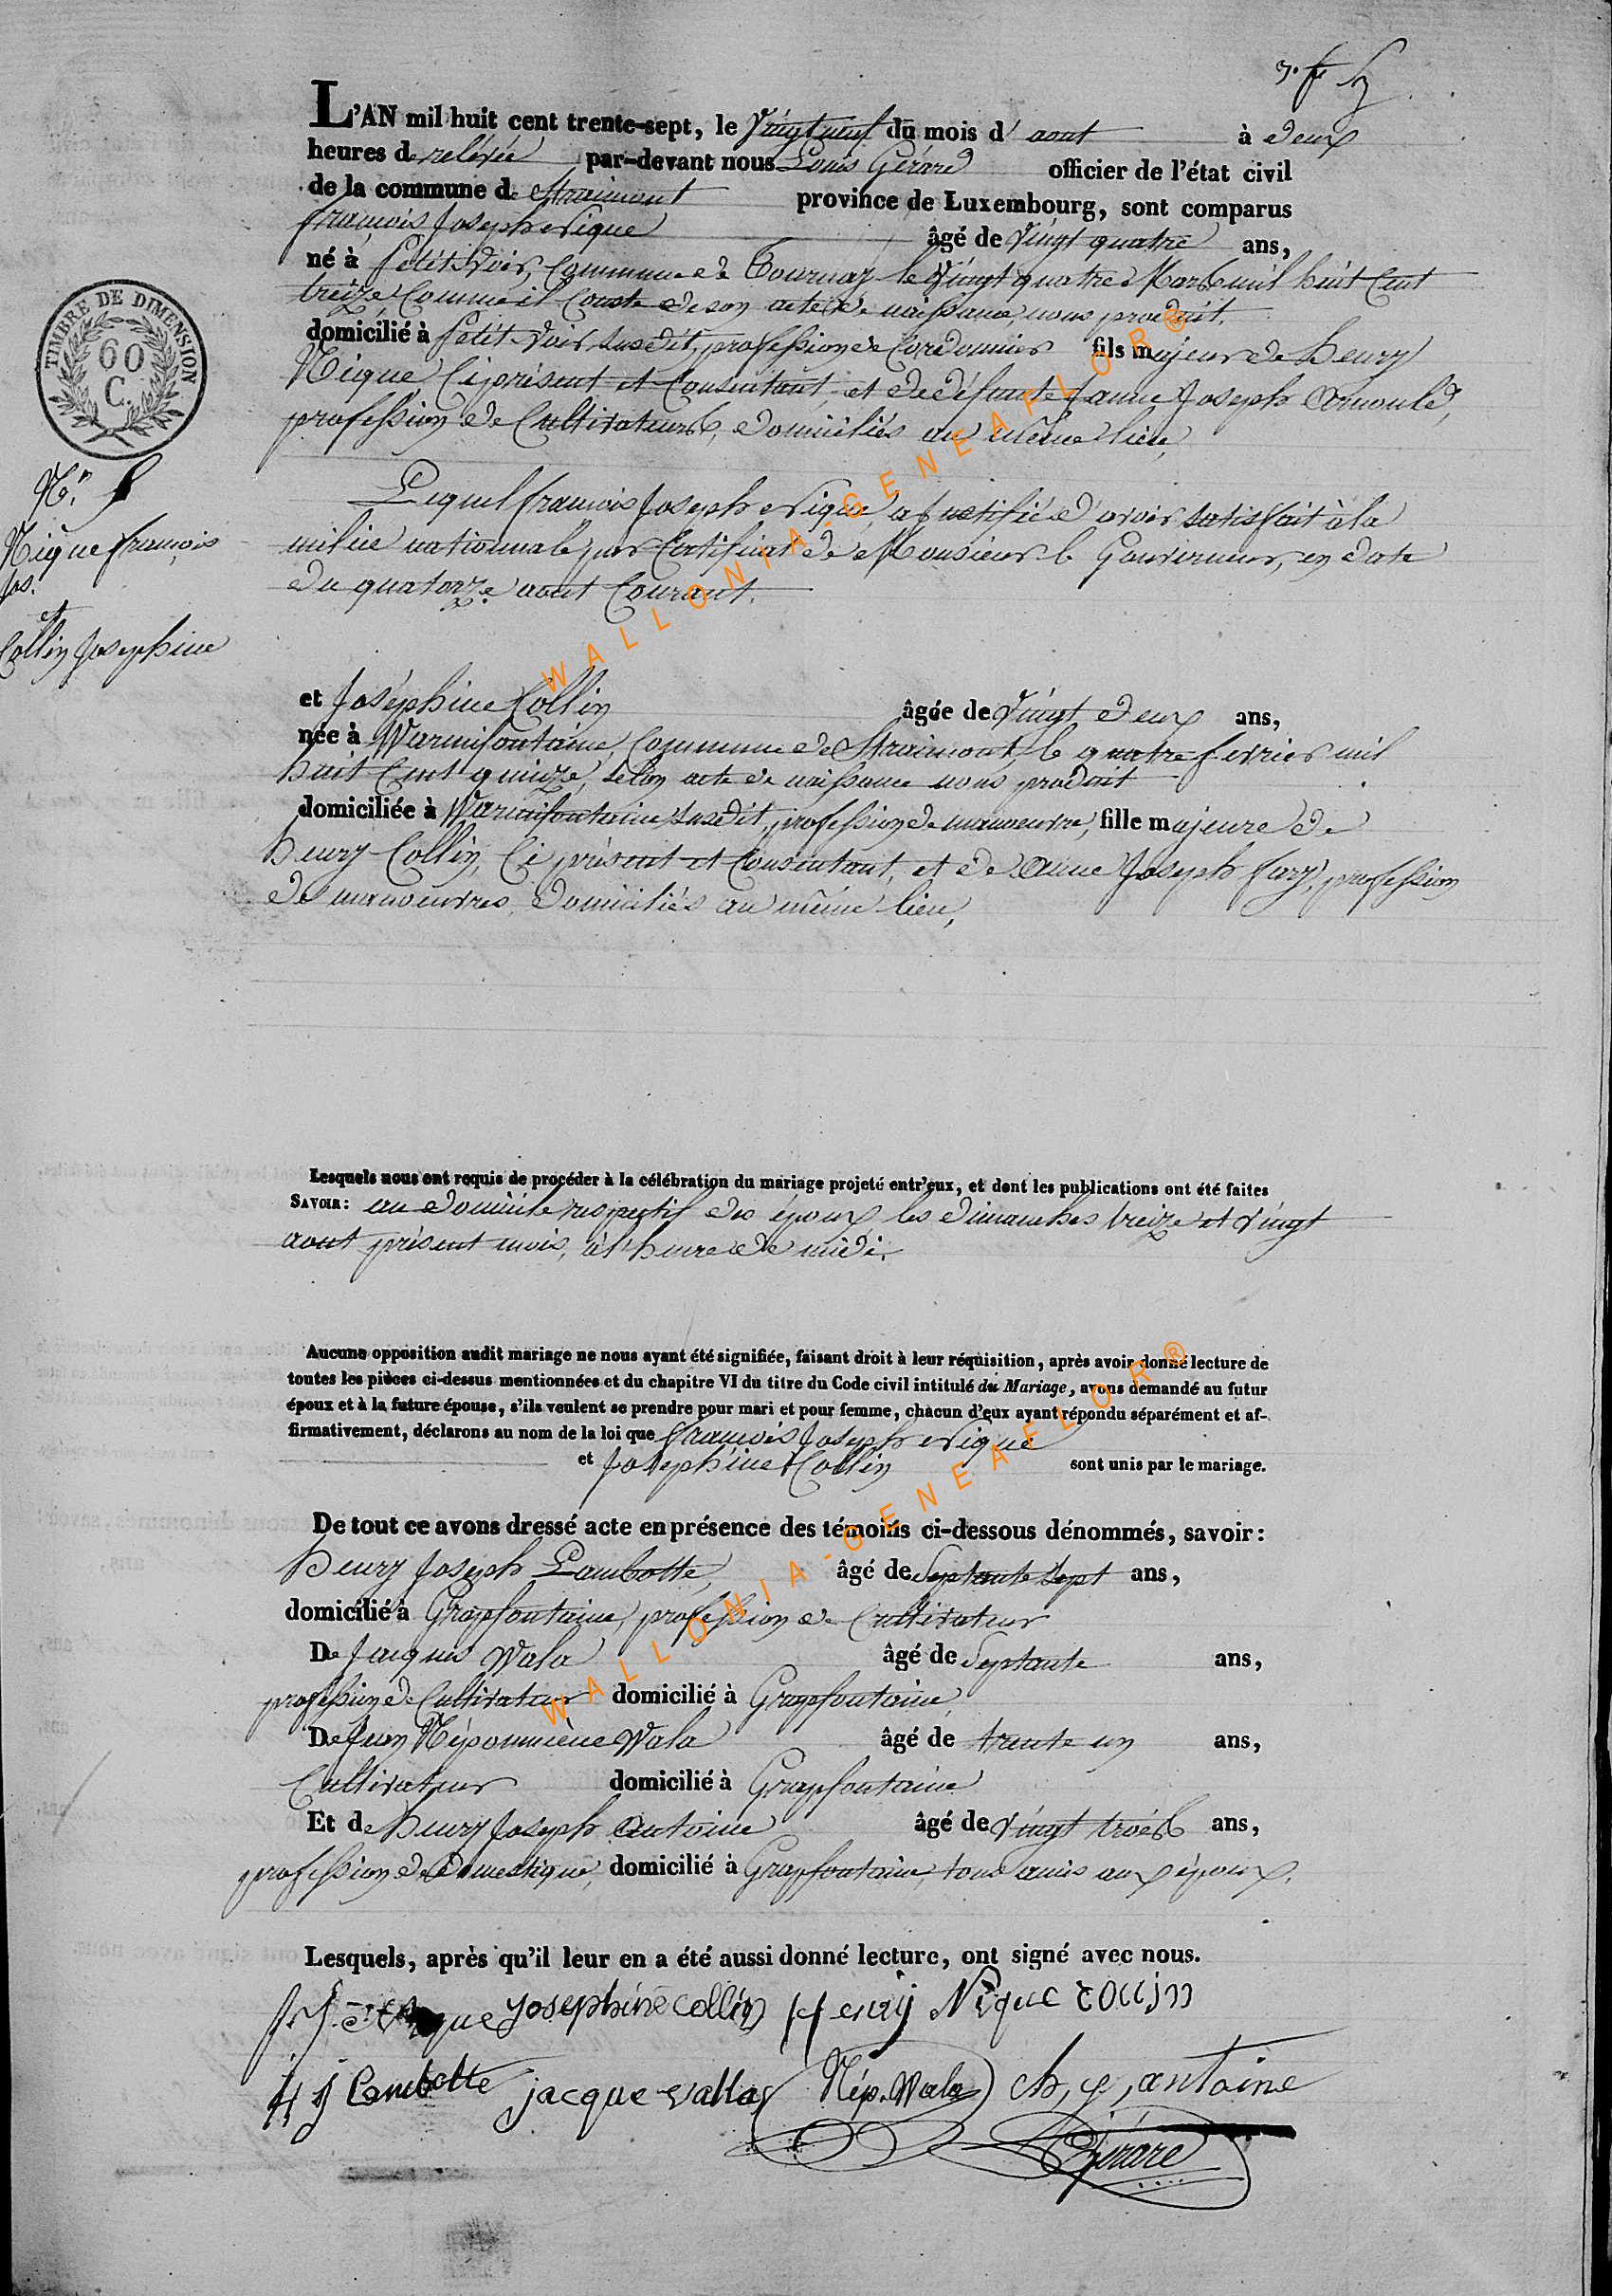 L'AN mil huit cent trente-sept, le vingt neuf du mois d'aout à deux
heures de relévée par-devant nous Louis Gérard officier de l'état civil
de la commune de Straimont province de Luxembourg, sont comparus
françois Joseph Nique âgé de vingt quatre ans,
né à petit Voir, Commune de Tournay le vingt quatre Mars mil huit Cent
treize Comme il Conste de son acte de naissance, nous produit.
domicilié à petit Voir susdit, profession de Cordonnier fils majeur de henry
Nique Ci présent et Consentant, et de défunte anne Joseph Arnould,
profession de Cultivateurs, domiciliés au même lieu,
Lequel francois Joseph Nique, a justifié d'avoir satisfait à la
milice nationnale par Certificat de Monsieur le Gouverneur, en date
du quatorze aout Courant.
TIMBRE DE DIMENSION
60
C.
Nique françois
Jos.
et
Collin Josephine
et Joséphine Collin âgée de vingt deux ans,
née à Warmifontaine, Commune de Straimont, le quatre fevrier mil
huit Cent quinze, selon acte de naissance nous produit
domiciliée à Warmifontaine susdit, profession de manoeuvre, fille majeure de
henry Collin, Ci présent et Consentant, et de anne Joseph fary, profession
de manoeuvres, domiciliés au même lieu,
Lesquels nous ont requis de procéder à la célébration du mariage projeté entr'eux, et dont les publications ont été faites
SAVOIR: au domicile respectif des époux, les dimanches treize et vingt
aout présent mois, à l'heure de midi,
Aucune opposition audit mariage ne nous ayant été signifiée, faisant droit à leur réquisition, après avoir donné lecture de
toutes les pièces ci-dessus mentionnées et du chapitre VI du titre du Code civil intitulé du Mariage, avons demandé au futur
époux et à la future épouse, s'ils veulent se prendre pour mari et pour femme, chacun d'eux ayant répondu séparément et af-
firmativement, déclarons au nom de la loi que francois Joseph Nique
et Josephine Collin sont unis par le mariage.
De tout ce avons dressé acte en présence des témoins ci-dessous dénommés, savoir:
henry Joseph Lambotte, âgé de Septante sept ans,
domicilié à Grapfontaine, profession de Cultivateur
De Jacques Wala âgé de Septante ans,
profession de Cultivateur domicilié à Grapfontaine,
De Jean Népomucène Wala âgé de trente un ans,
Cultivateur domicilié à Grapfontaine
Et de henry Joseph antoine âgé de vingt trois ans,
profession de domestique, domicilié à Grapfontaine, tous amis aux époux.
Lesquels, après qu'il leur en a été aussi donné lecture, ont signé avec nous.
josephine collin Henry Nique collin
H J Lambotte jacque vallas Nép. Wala ch, j, antoine
Gérard
WALLONIA-GENEAFLOR®
WALLONIA-GENEAFLOR®